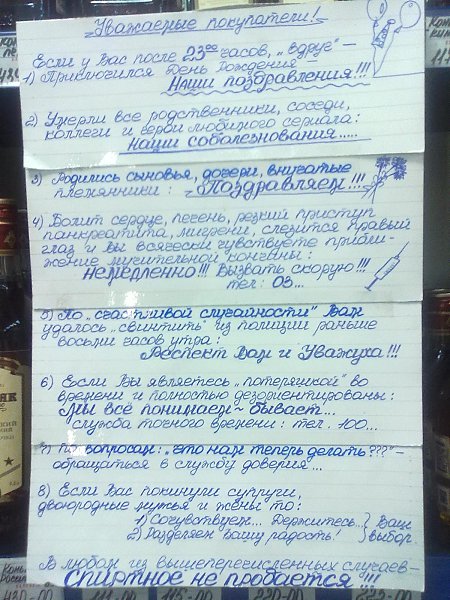 Уважаемые покупатели!
Если у Вас после 23⁰⁰ часов, „вдруг" –
1) Приключился День Рождения –
Наши поздравления!!!
2) Умерли все родственники, соседи,
коллеги и герои любимого сериала:
Наши соболезнования.....
3) Родились сыновья, дочери, внучатые
племянники: Поздравляем!!!
4) Болит сердце, печень, резкий приступ
панкреатита, мигрени, слезится правый
глаз и вы всячески чувствуете прибли-
жение мучительной кончины:
Немедленно!!! Вызвать скорую!!!
тел: 03...
5) По „счастливой случайности" Вам
удалось „свинтить" из полиции раньше
восьми часов утра:
Респект Вам и Уважуха!!!
6) Если Вы являетесь „потеряшкой" во
времени и полностью дезориентированы:
Мы всё понимаем – бывает...
служба точного времени: тел. 100...
7) По вопросам: „что нам теперь делать???" –
обращаться в службу доверия...
8) Если Вас покинули супруги,
двоюродные мужья и жены то:
1) Сочувствуем... Держитесь... } Ваш
2) Разделяем вашу радость! } выбор.
В любом из вышеперечисленных случаев –
Спиртное не продается!!!